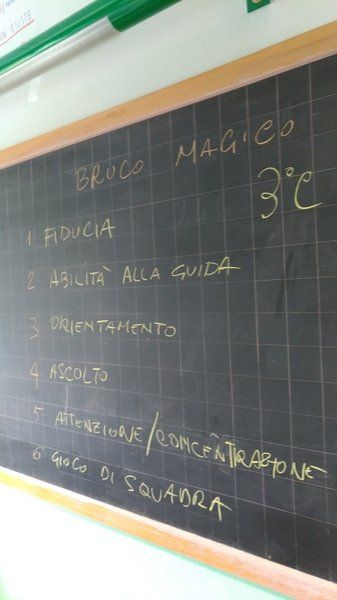 ESISTE
BRUCO MAGICO
3°C
1 FIDUCIA
2 ABILITÀ ALLA GUIDA
3 ORIENTAMENTO
4 ASCOLTO
5 ATTENZIONE/CONCENTRAZIONE
6 GIOCO DI SQUADRA